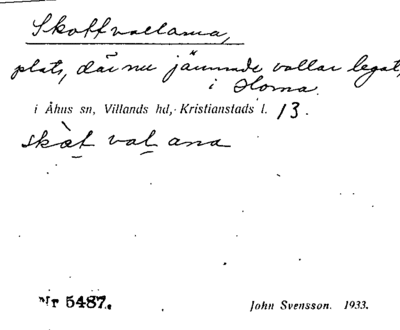 Skottvallama,
plats, där nu jämnade vallar legat,
i Horna.
i Åhus sn, Villands hd, Kristianstads l. 13.
skòt val ana
Nr 5487.
John Svensson. 1933.